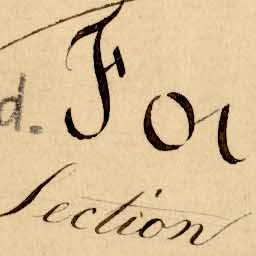 d. For
Section